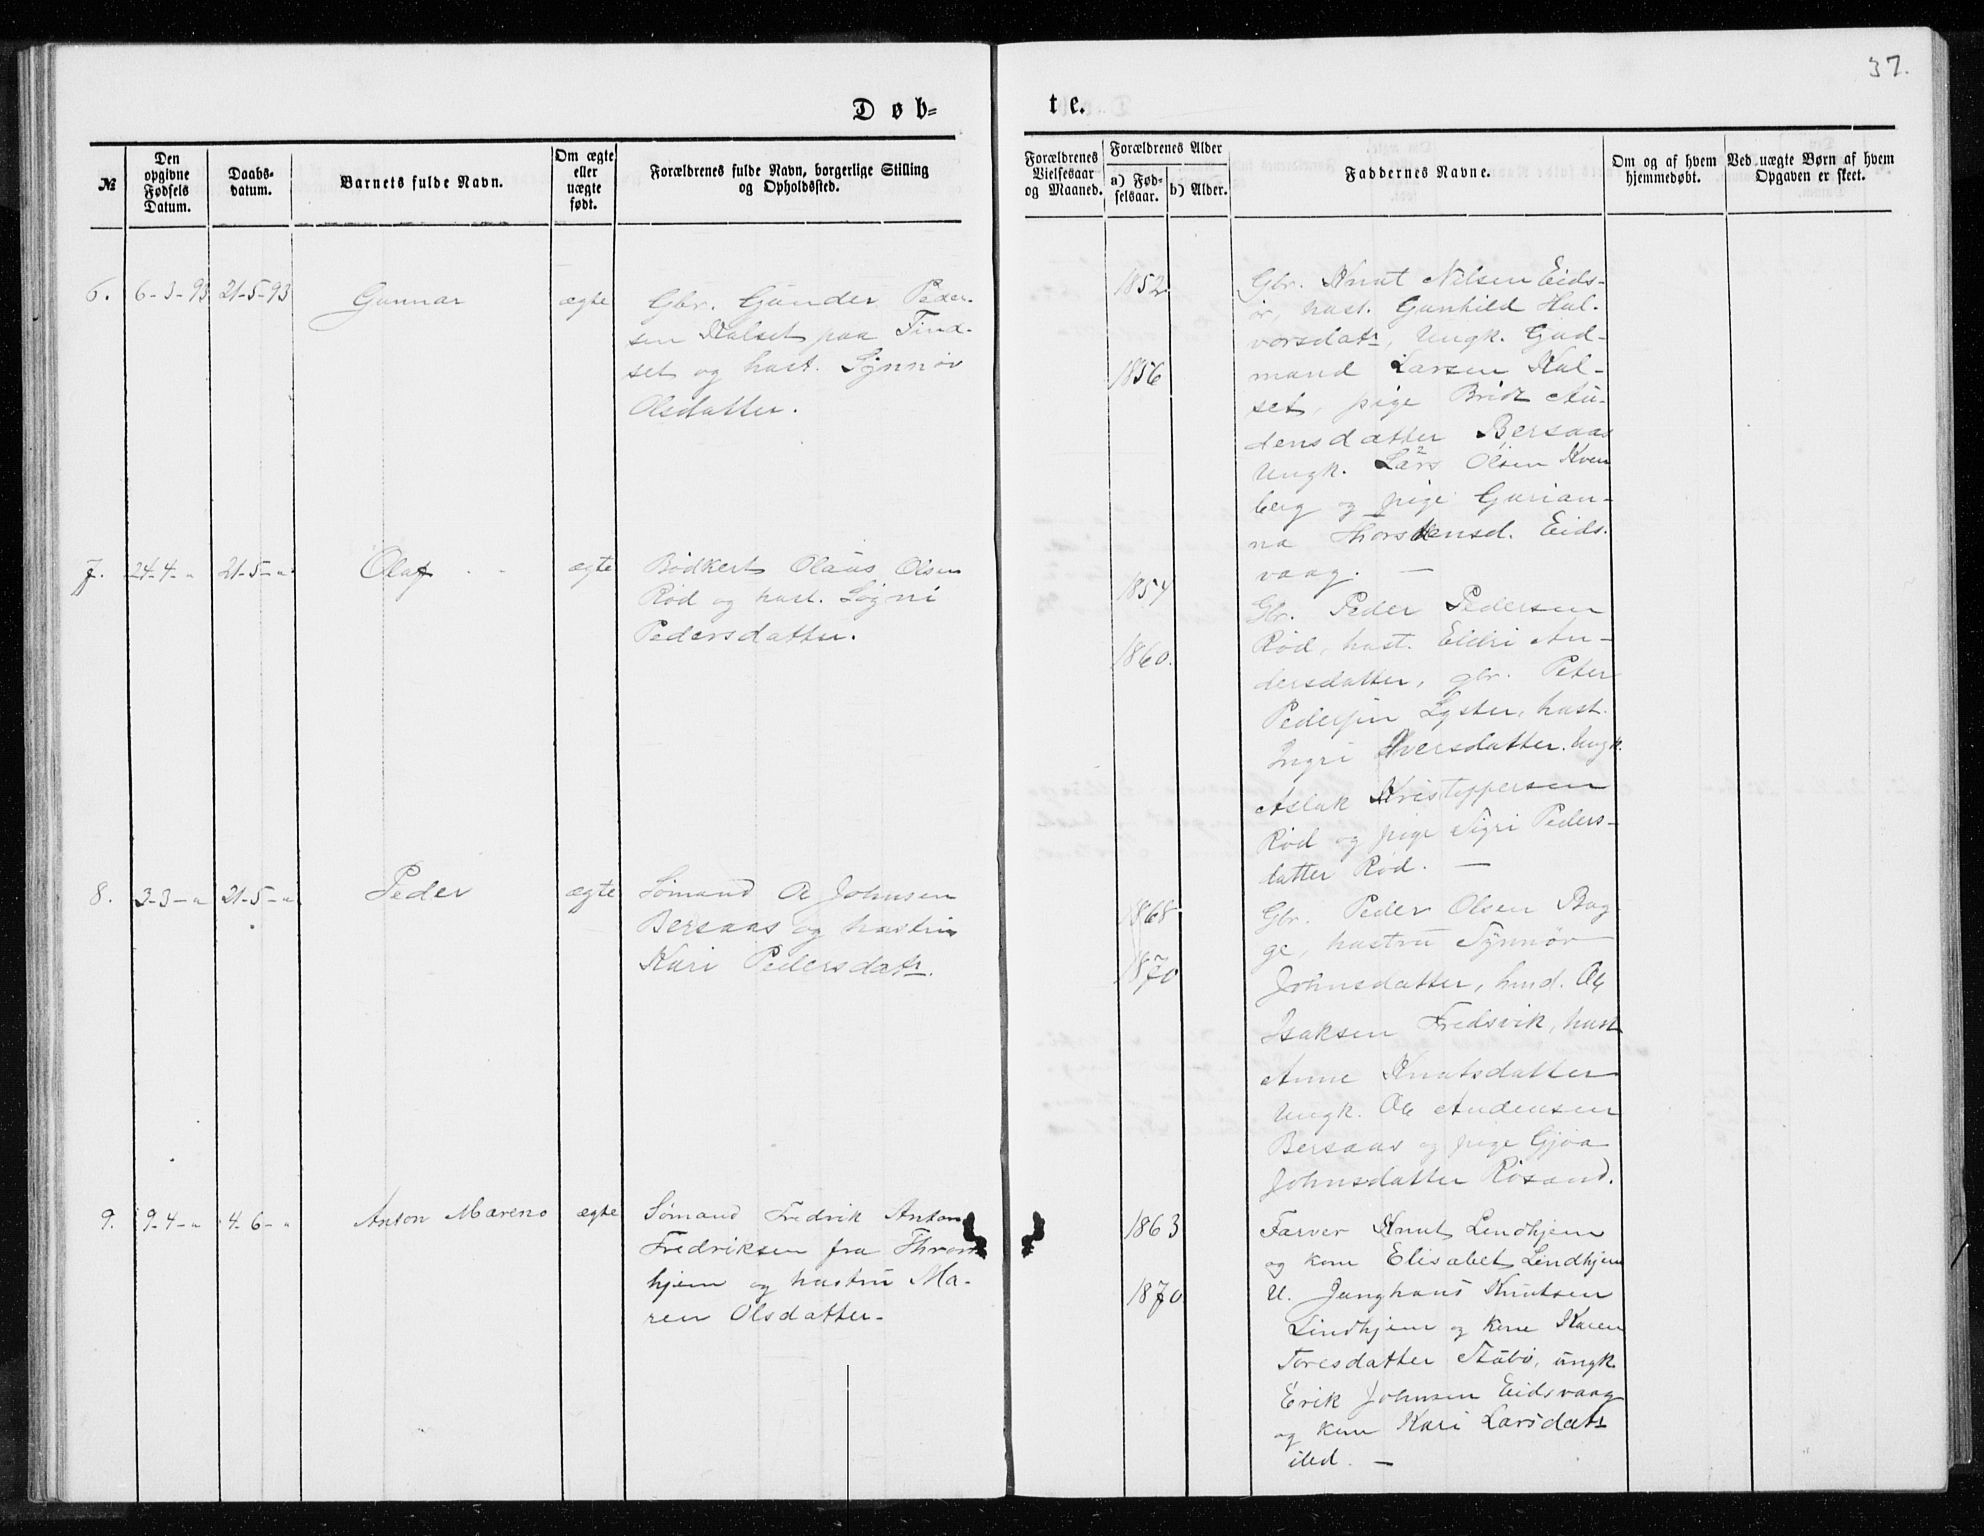 37.
Døb-
te.
№
Den opgivne Fødsels Datum.
Daabs-datum.
Barnets fulde Navn.
Om ægte eller uægte født.
Forældrenes fulde Navn, borgerlige Stilling og Opholdssted.
Forældrenes Vielsesaar og Maaned.
Forældrenes Alder
a) Fød-selsaar.
b) Alder.
Faddernes Navne.
Om og af hvem hjemmedøbt.
Ved uægte Børn af hvem Opgaven er skeet.
6. 6-3-93 21-5-93 Gunnar ægte
Gbr. Gunder Peder-
sen Halset paa Tind-
set og hust. Synnøv
Olsdatter.
1852
1856
Gbr. Knut Nilsen Eids-
ør, hust. Gunhild Hal-
vorsdatr, Ungk. Gud-
mand Larsen Hal-
set, pige Brit Au-
densdatter Bersaas
Ungk. Lars Olsen Kven
berg og pige Gurian-
na Thorstensd. Eids-
vaag. —
7. 24-4-" 21-5-" Olaf ægte
Bødkert Olaus Olsen
Rød og hust. Signi
Pedersdatter.
1854
1860.
Gbr. Peder Pedersen
Rød, hust. Eldri An-
dersdatter, gbr. Peter
Pedersen Lyster, hust.
Ingri Iversdatter. Ungk.
Aslak Kristoffersen
Rød og pige Sigri Peders-
datter Rød. —
8. 3-3-" 21-5-" Peder ægte
Sømand O Johnsen
Bersaas og hustru
Kari Pedersdatr.
1868
1870
Gbr. Peder Olsen Bug-
ge, hustru Synnøv
Johnsdatter, hmd. Ole
Isaksen Fredsvik, hust
Anne Knutsdatter
Ungk. Ole Audensen
Bersaas og pige Gjøa
Johnsdatter Røsand.
9. 9-4-" 4-6-" Anton Mareno ægte
Sømand Fredrik Anton
Fredriksen fra Thron
hjem og hustru Ma-
ren Olsdatter.
1863
1870
Farver Knut Lindhjem
og kone Elisabet Lindhjem
U. Junghans Knutsen
Lindhjem og kone Karen
Toresdatter Stubø, ungk
Erik Johnsen Eidsvaag
og kone Kari Larsdatr
ibd. —